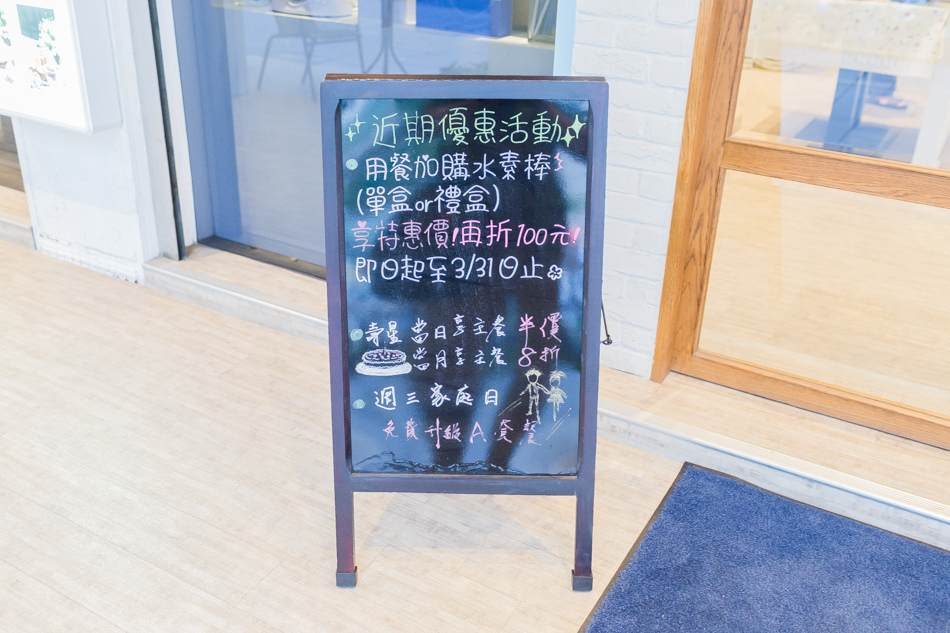 近期優惠活動
用餐加購水素棒
(單盒or禮盒)
享特惠價!再折100元!
即日起至3/31日止
壽星當日享主餐半價
當月享主餐8折
週三家庭日
免費升級A套餐